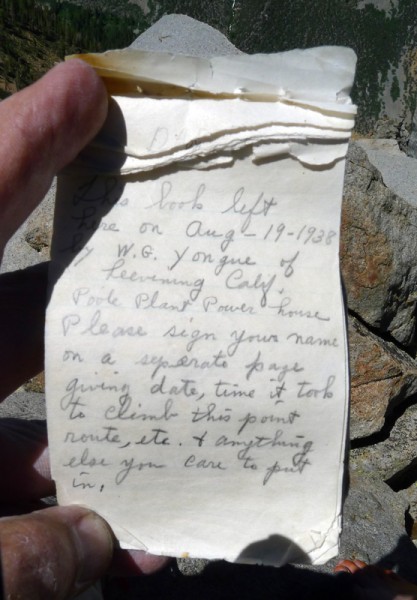 This book left
here on Aug-19-1938
by W.G. Yongue of
Leevening Calif.
Poole Plant Power house
Please sign your name
on a seperate page
giving date, time it took
to climb this point
route, etc. & anything
else you care to put
in.